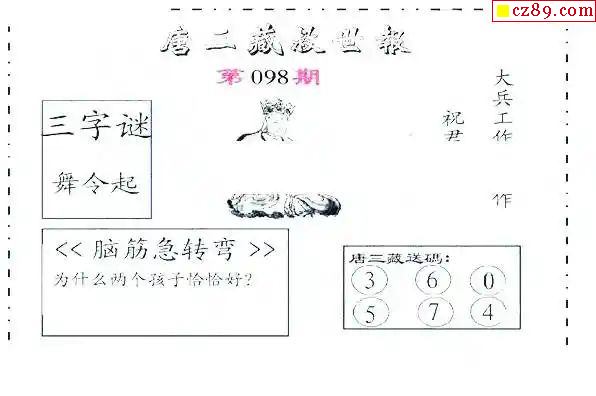 cz89.com
唐二藏救世报
第098期
大兵工作
祝君
作
三字谜
舞令起
<< 脑筋急转弯 >>
为什么两个孩子恰恰好？
唐三藏送码：
3 6 0
5 7 4